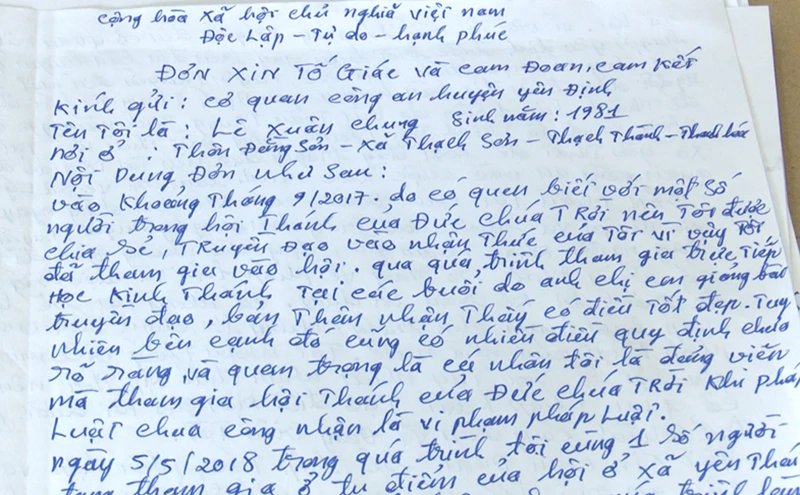 cộng hòa xã hội chủ nghĩa việt nam
Độc Lập - Tự do - hạnh phúc
ĐƠN XIN TỐ GIÁC và cam Đoan, cam kết
Kính gửi: cơ quan công an huyện yên Định
Tên Tôi là: Lê xuân chung Sinh năm: 1981
nơi ở : Thôn Đồng Sơn - xã Thạch Sơn - Thạch Thành - Thanh hóa
Nội Dung Đơn như Sau:
vào Khoảng Tháng 9/2017. do có quen biết với một Số
người trong hội Thánh của Đức chúa TRời nên Tôi được
chia Sẻ, TRuyền Đạo vào nhận Thức của Tôi vì vậy Tôi
đã tham gia vào hội. qua quá trình tham gia trực tiếp
Học Kinh Thánh Tại các buổi do anh chị em giảng bài
truyền đạo, bản Thân nhận Thấy có điều Tốt đẹp. Tuy
nhiên bên cạnh đó cũng có nhiều điều quy định chưa
rõ ràng và quan trọng là cá nhân tôi là đảng viên
mà tham gia hội Thánh của Đức chúa TRời Khi pháp
Luật chưa công nhận là vi phạm pháp Luật.
ngày 5/5/2018 trong quá trình tôi cùng 1 Số người
tham gia ở tụ điểm của hội ở xã yên Thái